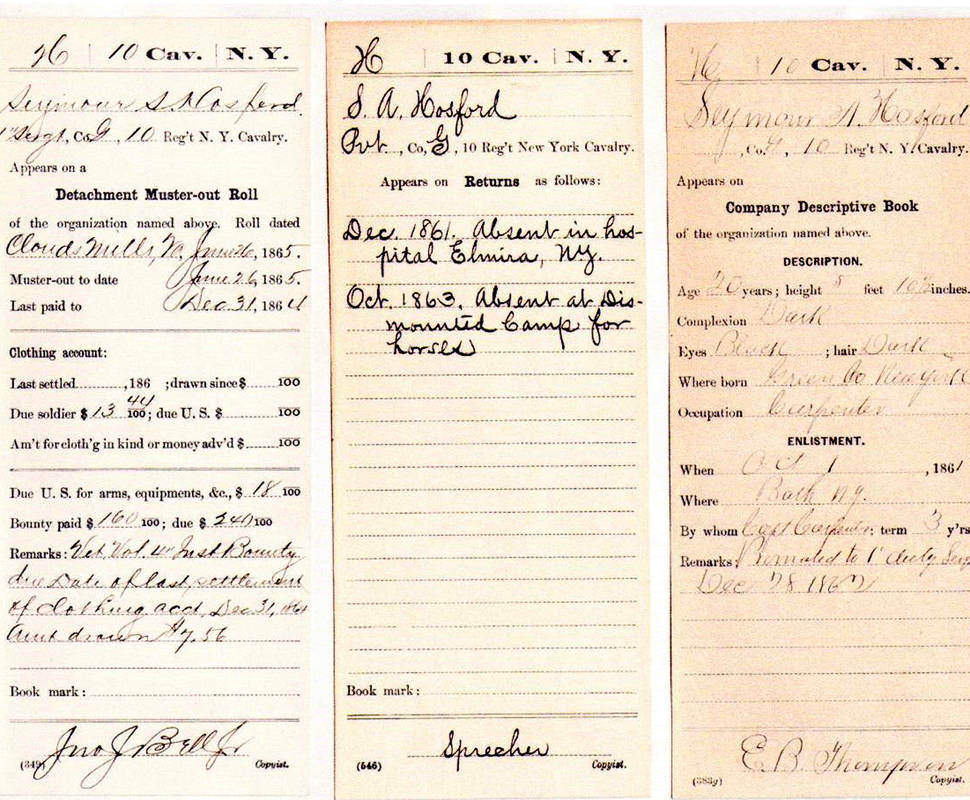 H | 10 Cav. | N. Y.
Seymour S. Hosford
1" Sergt, Co. G, 10 Reg't N. Y. Cavalry.
Appears on a
Detachment Muster-out Roll
of the organization named above. Roll dated
Clouds Mills, Va. June 26, 1865.
Muster-out to date June 26, 1865.
Last paid to Dec. 31, 1864
Clothing account:
Last settled ........, 186 ; drawn since $ ........ 100
Due soldier $ 13 44/100; due U. S. $ ........ 100
Am't for cloth'g in kind or money adv'd $ ........ 100
Due U. S. for arms, equipments, &c., $ 18 100
Bounty paid $ 160 100; due $ 240 100
Remarks: Vet. Vol. 4" Inst Bounty
due Date of last settlement
of clothing acct, Dec 31, 1864
Amt drawn $7.56
Book mark:
Jno J Bell Jr
(349) Copyist.
H | 10 Cav. | N. Y.
S. A. Hosford
Pvt., Co. G, 10 Reg't New York Cavalry.
Appears on Returns as follows:
Dec. 1861. Absent in hos-
pital Elmira, NY.
Oct. 1863. Absent at Dis-
mounted Camp for
horses
Book mark:
Sprecher
(546) Copyist.
H | 10 Cav. | N. Y.
Seymour A. Hosford
, Co. , 10 Reg't N. Y. Cavalry.
Appears on
Company Descriptive Book
of the organization named above.
DESCRIPTION.
Age 20 years; height 5 feet 10½ inches.
Complexion Dark
Eyes Black ; hair Dark
Where born Green Co New York
Occupation Carpenter
ENLISTMENT.
When Oct 1, 1861
Where Bath N.Y.
By whom Capt Carpenter; term 3 y'rs
Remarks: Promoted to 1" duty Serg
Dec 28 1862
E. B. Thompson
(383g) Copyist.